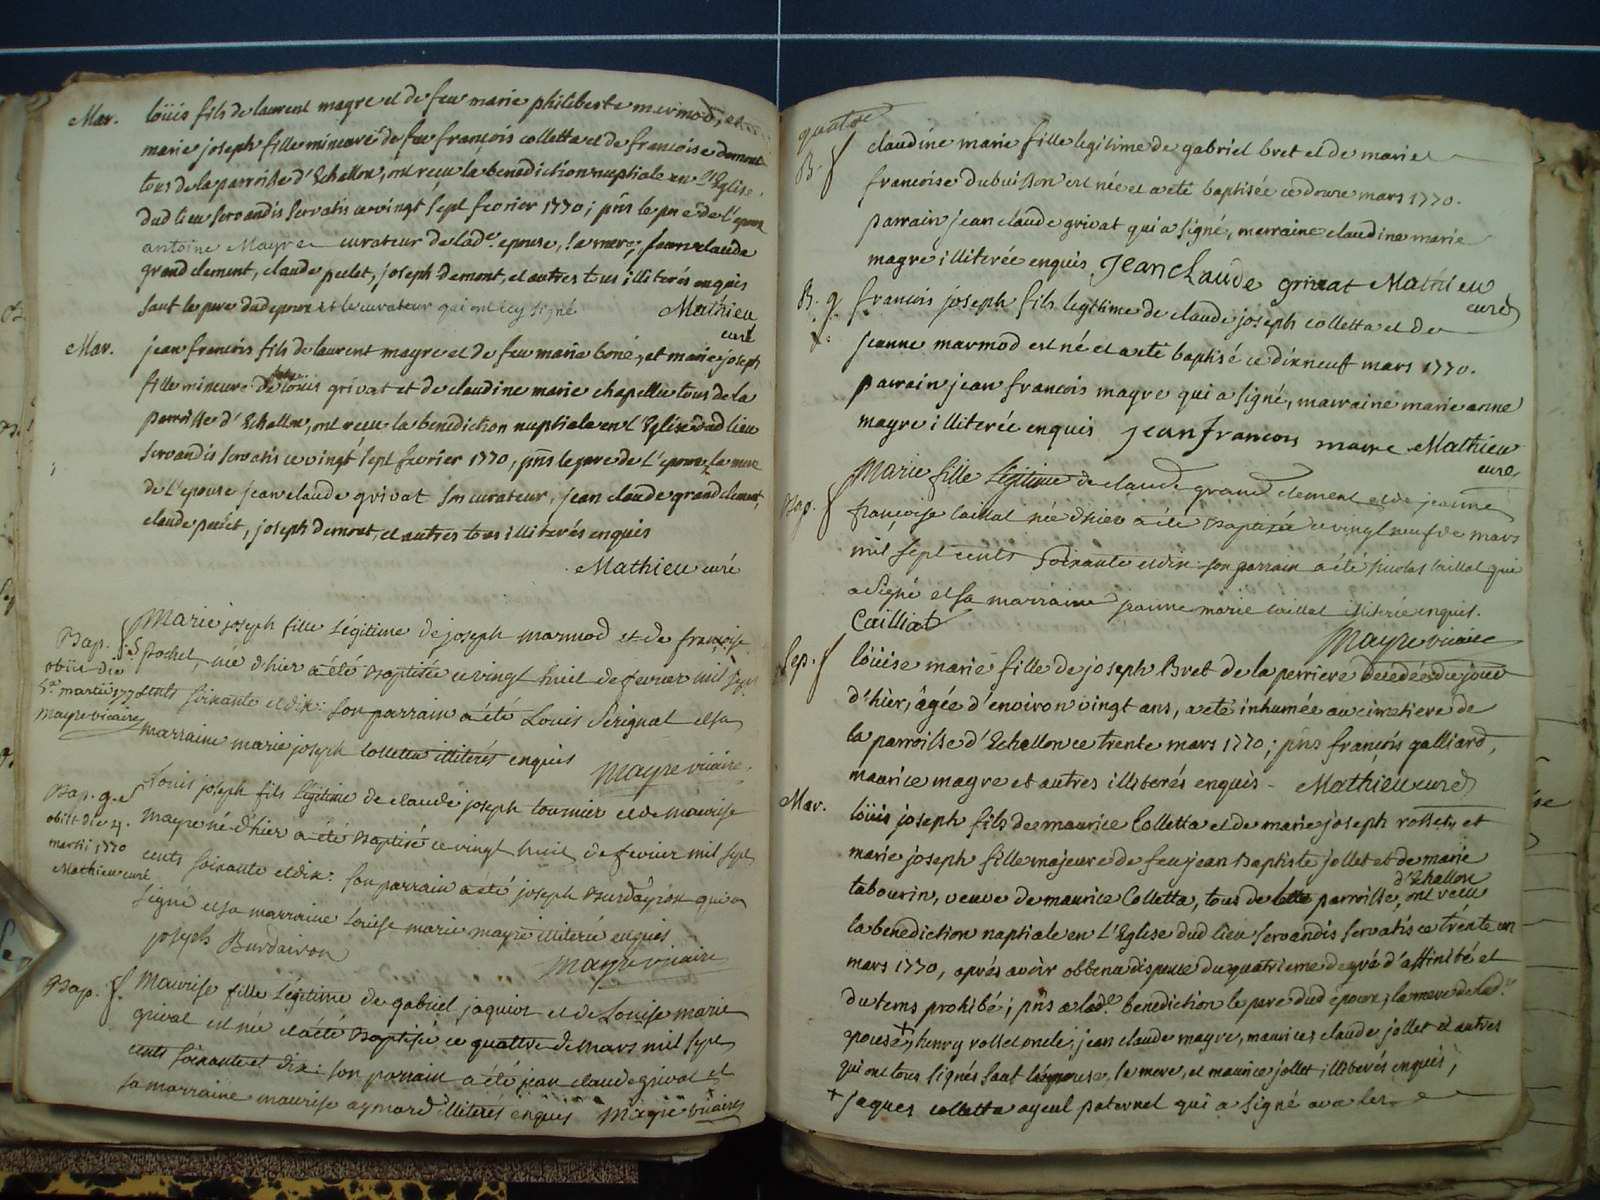 Mar. loüis fils de laurent magre et de feu marie philiberte mermod, et
marie joseph fille mineure de feu françois colletta et de francoise demont
tous de la parroisse d'Echallon, ont receu la benediction nuptiale en l'Eglise
dud lieu servandis servatis ce vingt sept fevrier 1770; pns le pre de l'epoux
antoine Mayre curateur de lad.e epouse, la mere, jean claude
grand clement, claude pelet, joseph demont, et autres tous illiterés enquis
sauf le pere dud epoux et le curateur qui ont icy signé Mathieu
curé
Mar. jean francois fils de laurent magre et de feu marie boné, et marie joseph
fille mineure de feu loüis grivat et de claudine marie chapelle tous de la
parroisse d'Echallon, ont receu la benediction nuptiale en l'Eglise dud lieu
servandis servatis ce vingt sept fevrier 1770, pns le pere de l'epoux, la mere
de l'epouse jean claude grivat son curateur, jean claude grand clement,
claude pelet, joseph demont, et autres tous illiterés enquis
Mathieu curé
Bap. S. Marie joseph fille Légitime de joseph marmod et de françoise
obiit die pochet, née d'hier a été Baptisée ce vingt huit de fevrier mil sept
5.a martii 1770 cents soixante et dix: son parrain a été Louis Serignat et sa
mayre vicaire marraine marie joseph Colletta illiterés enquis Mayre vicaire.
Bap. g. Louis joseph fils Légitime de claude joseph tournier et de maurise
obiit die 4. mayre né d'hier a été Baptisé ce vingt huit de fevrier mil sept
martii 1770 cents soixante et dix: son parrain a été joseph Burdayron qui a
Mathieu curé signé et sa marraine Louise marie mayre illiterée enquis
joseph Burdairon Mayre vicaire
Bap. f. Maurise fille Légitime de gabriel jaquiot et de Louise marie
grivat est née et a été Baptisée ce quattre de mars mil sept
cents soixante et dix: son parrain a été jean claude grivat et
sa marraine maurise aymard illiterés enquis Mayre vicaire
quatre
B. f claudine marie fille legitime de gabriel bret et de marie
francoise dubuisson est née et a eté baptisée ce douze mars 1770.
parrain jean claude grivat qui a signé, marraine claudine marie
magre illiterée enquis Jean Claude grivat Mathieu
curé
B. g. francois joseph fils legitime de claude joseph colletta et de
jeanne marmod est né et a eté baptisé ce dixneuff mars 1770.
parrain jean francois magre qui a signé, marraine marie anne
magre illiterée enquis jean francois maire Mathieu
curé
Bap. f Marie fille Légitime de claude grand clement et de jeanne
françoise caillat née d'hier a été Baptisée ce vingt neuf de mars
mil sept cents soixante et dix son parrain a été nicolas caillat qui
a signé et sa marraine jeanne marie caillat illiterée enquis.
Cailliat Mayre vicaire
Sep. f loüise marie fille de joseph Bret de la perriere decedée du jour
d'hier, âgée d'environ vingt ans, a eté inhumée au cimetiere de
la parroisse d'Echallon ce trente mars 1770; pns françois galliard,
maurice magre et autres illiterés enquis - Mathieu curé
Mar. loüis joseph fils de maurice Colletta et de marie joseph rosset, et
marie joseph fille majeure de feu jean Baptiste jollet et de marie
d'Echallon
tabourin, veuve de maurice Colletta, tous de parroisse, ont receu
la benediction nuptiale en l'Eglise dud lieu servandis servatis ce trente un
mars 1770, aprés avoir obtenu dispence du quatrieme degré d'affinité et
du tems prohibé; pns a lad.e benediction le pere dud epoux, la mere de lad.e
epouse, + henry rosset oncle, jean claude magre, maurice, claude jollet et autres
qui ont tous signés sauf l'epouse, la mere, et maurice jollet illiterés enquis,
+ jaques colletta ayeul paternel qui a signé avec les